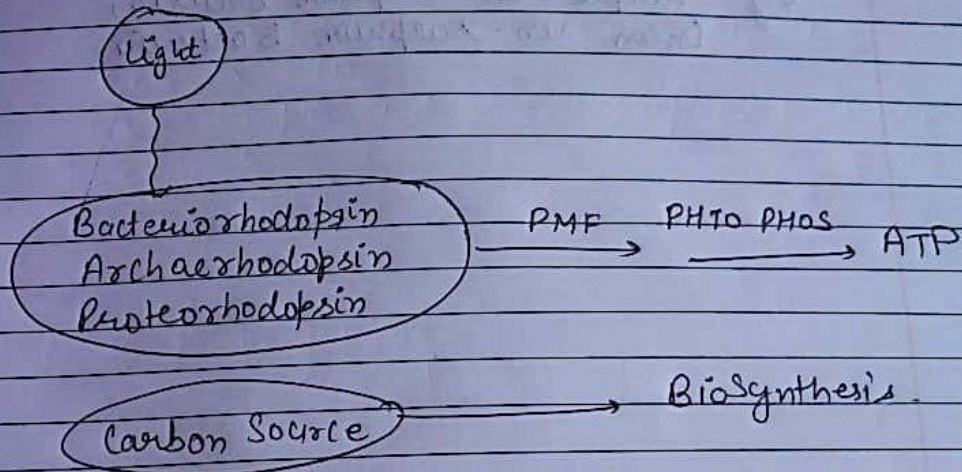 Light
Bacteriorhodopsin
Archaerhodopsin
Proteorhodopsin
PMF
PHTO PHOS
ATP
Carbon Source
BioSynthesis.